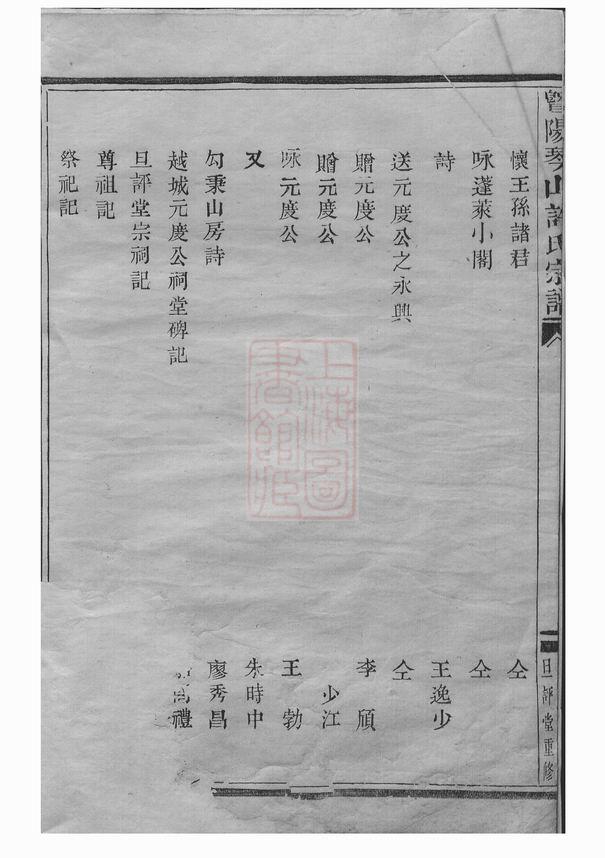 暨陽琴山許氏宗譜
旦評堂重修
懷王孫諸君 仝
咏蓬萊小閣 仝
詩 王逸少
送元慶公之永興 仝
贈元慶公 李頎
贈元慶公 少江
咏元慶公 王勃
又 朱時中
勾乘山房詩 廖秀昌
越城元慶公祠堂碑記 禮
旦評堂宗祠記
尊祖記
祭祀記
上海圖書館藏